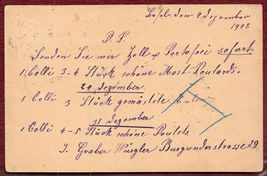 Basel den 9 Dezember
1908
P. P.
Senden Sie mir Zoll u Portofrei sofort
1 Colli 3-4 Stück schöne Mast-Poulards.
29 Dezember
1 Colli 3 Stück gemästete
31 Dezember
1 Colli 4-5 Stück schöne Poulets
J. Graber Burgunderstrasse 29.